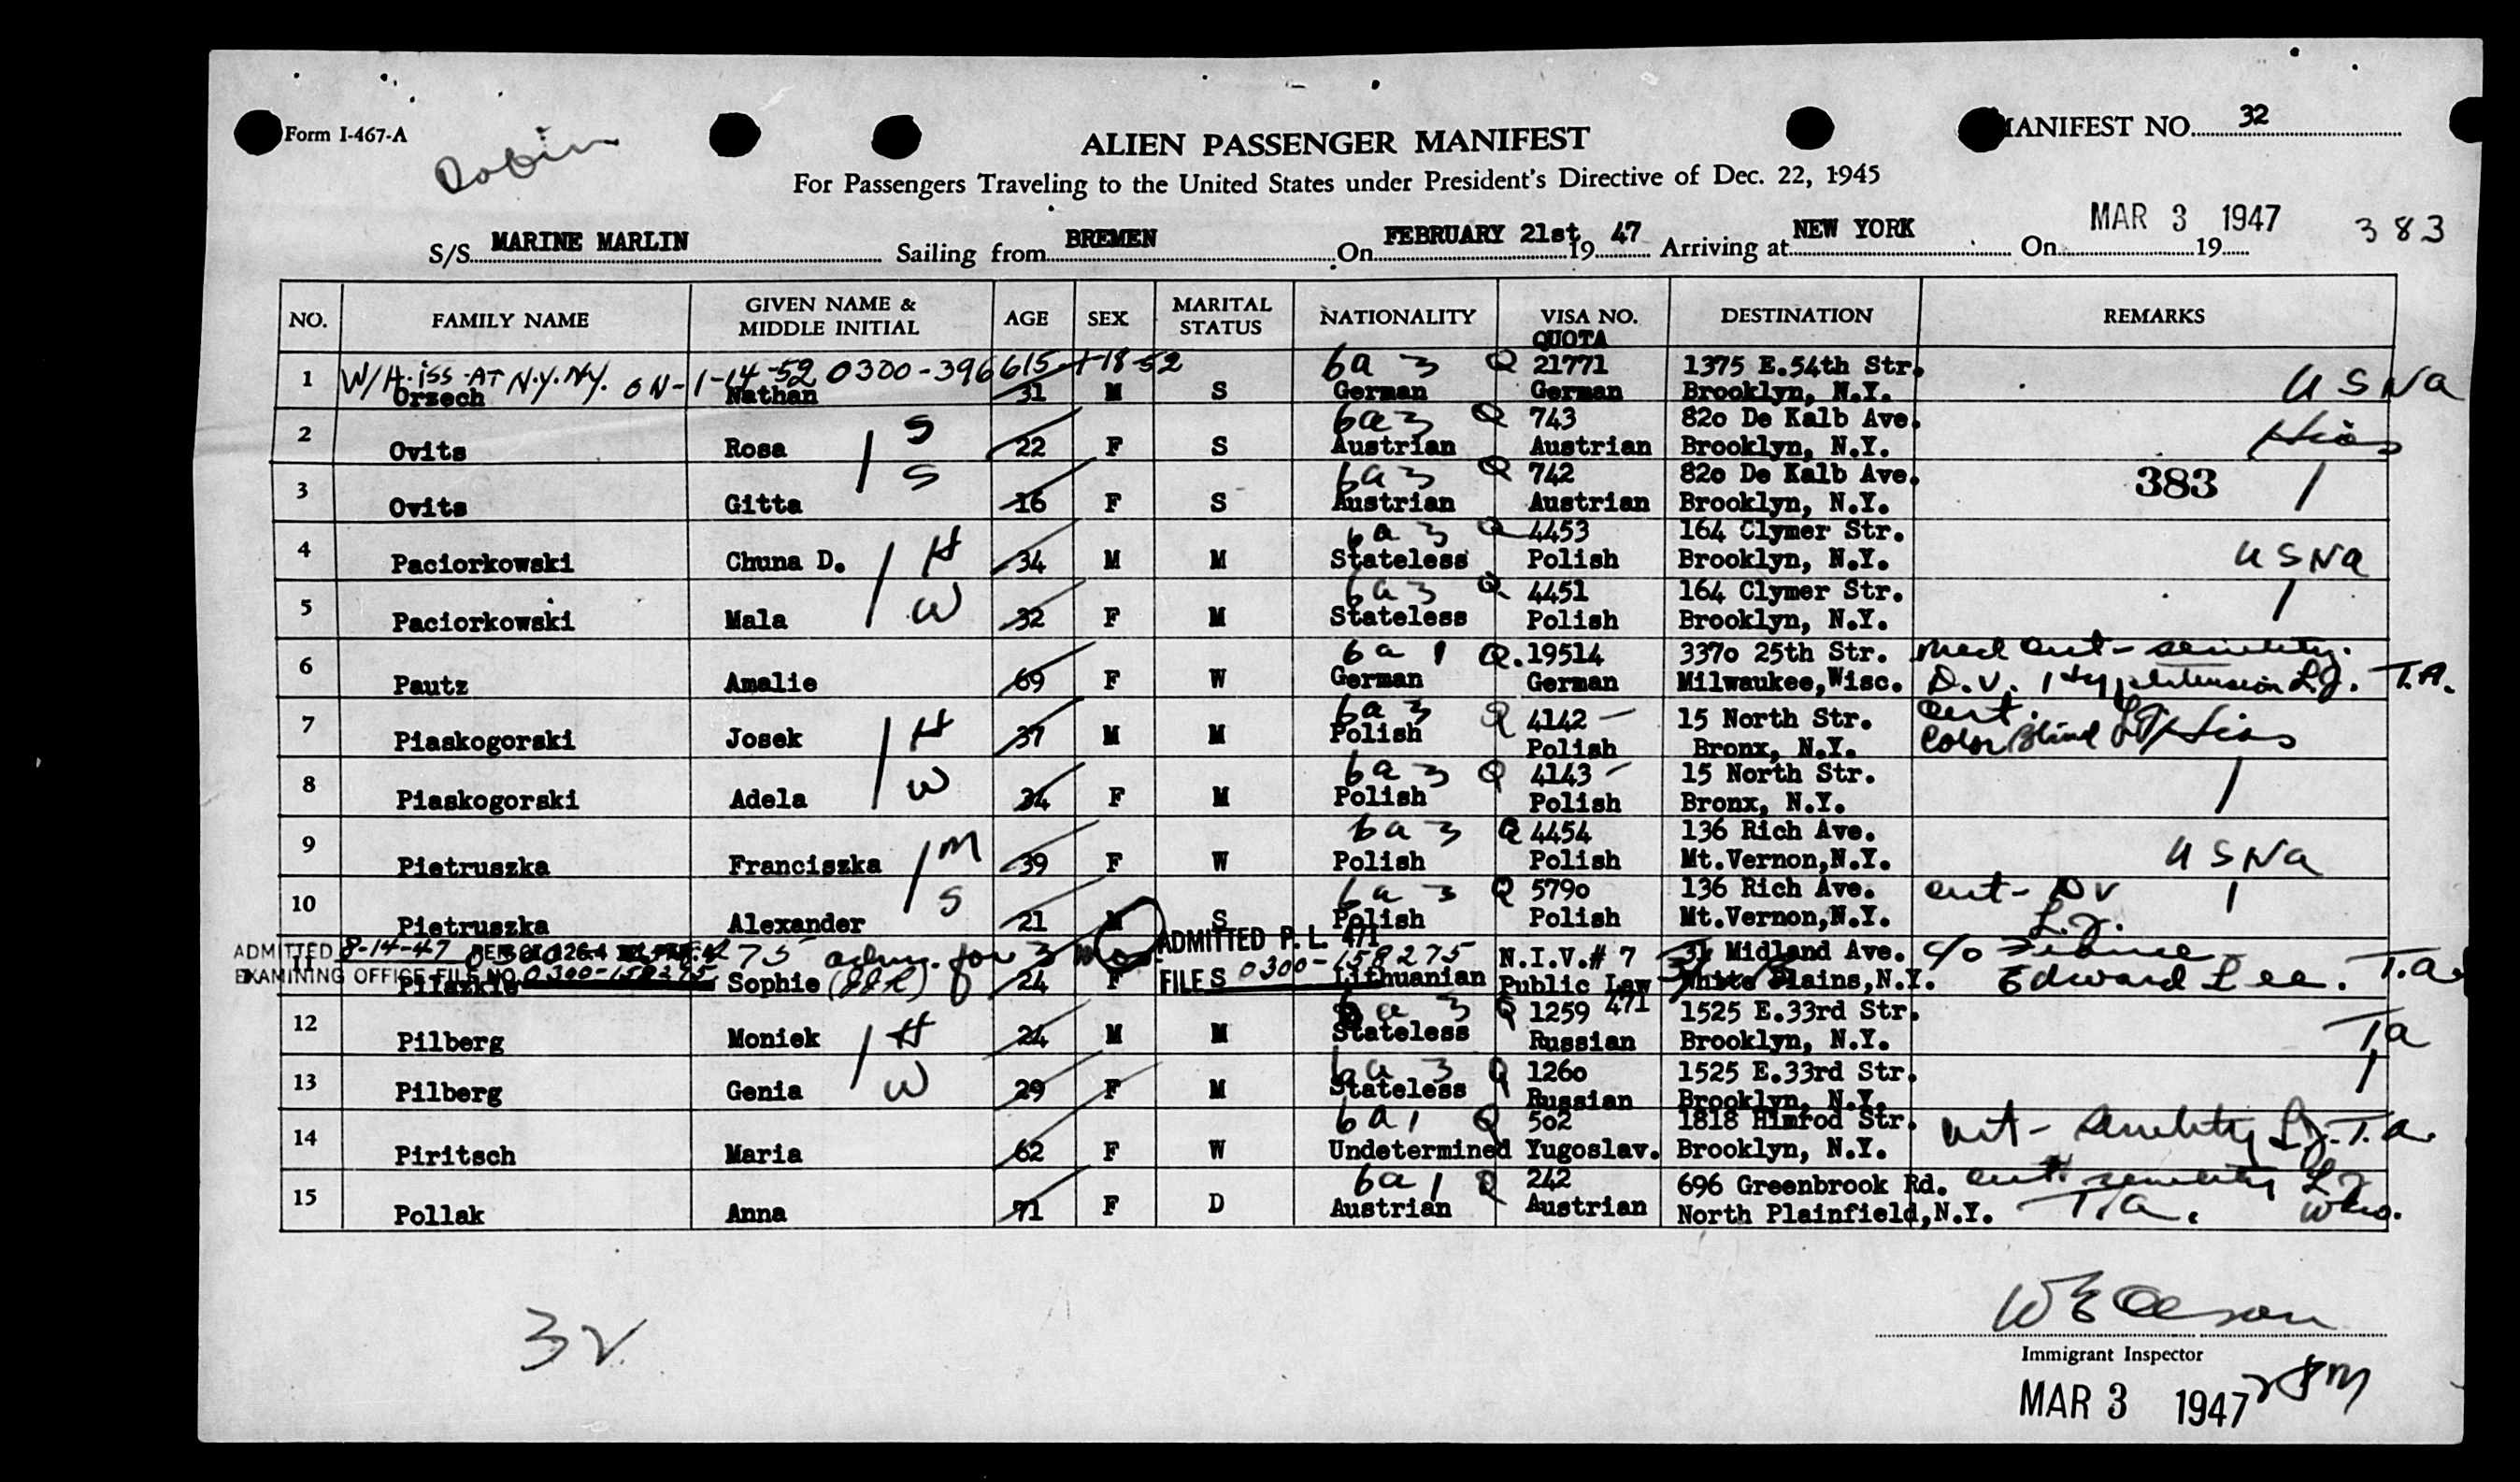 Form I-467-A
ALIEN PASSENGER MANIFEST
MANIFEST NO. 32
For Passengers Traveling to the United States under President's Directive of Dec. 22, 1945
S/S MARINE MARLIN Sailing from BREMEN On FEBRUARY 21st 19 47 Arriving at NEW YORK On MAR 3 1947 19 383
NO. FAMILY NAME GIVEN NAME & MIDDLE INITIAL AGE SEX MARITAL STATUS NATIONALITY VISA NO. QUOTA DESTINATION REMARKS
W/H iss AT N.Y. N.Y. ON-1-14-52 0300-396615 1-18-52 6a 3 Q 21771 1375 E.54th Str.
1 Orzech Nathan 31 M S German German Brooklyn, N.Y. USNA
6a3 Q 743 820 De Kalb Ave.
2 Ovits Rosa S 22 F S Austrian Austrian Brooklyn, N.Y. Hias
6a3 Q 742 820 De Kalb Ave.
3 Ovits Gitta S 16 F S Austrian Austrian Brooklyn, N.Y. 383
6a 3 Q 4453 164 Clymer Str.
4 Paciorkowski Chuna D. H 34 M M Stateless Polish Brooklyn, N.Y. USNA
6a3 Q 4451 164 Clymer Str.
5 Paciorkowski Mala W 32 F M Stateless Polish Brooklyn, N.Y.
6a 1 Q. 19514 3370 25th Str. Med cert- senility.
6 Pautz Amalie 69 F W German German Milwaukee,Wisc. D.V. Hypertension T.A.
6a 3 Q 4142 15 North Str. cert.
7 Piaskogorski Josek H 37 M M Polish Polish Bronx, N.Y. Color Blind Hias
6a 3 Q 4143 15 North Str.
8 Piaskogorski Adela W 34 F M Polish Polish Bronx, N.Y.
6a 3 Q 4454 136 Rich Ave.
9 Pietruszka Franciszka M 39 F W Polish Polish Mt.Vernon,N.Y. USNA
6a 3 Q 5790 136 Rich Ave. cert- DV
10 Pietruszka Alexander S 21 M S Polish Polish Mt.Vernon,N.Y.
ADMITTED 8-14-47 adm. for 3 mos ADMITTED P. L. 471 N.I.V.# 7 31 Midland Ave. c/o Fiance
EXAMINING OFFICE FILE NO. 0300-158275 Sophie 24 F FILE S 0300-158275 Lithuanian Public Law 471 White Plains,N.Y. Edward Lee. T.A.
6a 3 Q 1259 1525 E.33rd Str.
12 Pilberg Moniek H 24 M M Stateless Russian Brooklyn, N.Y. TA
6a 3 Q 1260 1525 E.33rd Str.
13 Pilberg Genia W 29 F M Stateless Russian Brooklyn, N.Y.
6a1 Q 502 1818 Himrod Str. cert- senility T.A.
14 Piritsch Maria 62 F W Undetermined Yugoslav. Brooklyn, N.Y.
6a 1 Q 242 696 Greenbrook Rd. cert. senility
15 Pollak Anna 71 F D Austrian Austrian North Plainfield,N.Y. T.A.
32
Immigrant Inspector
MAR 3 1947